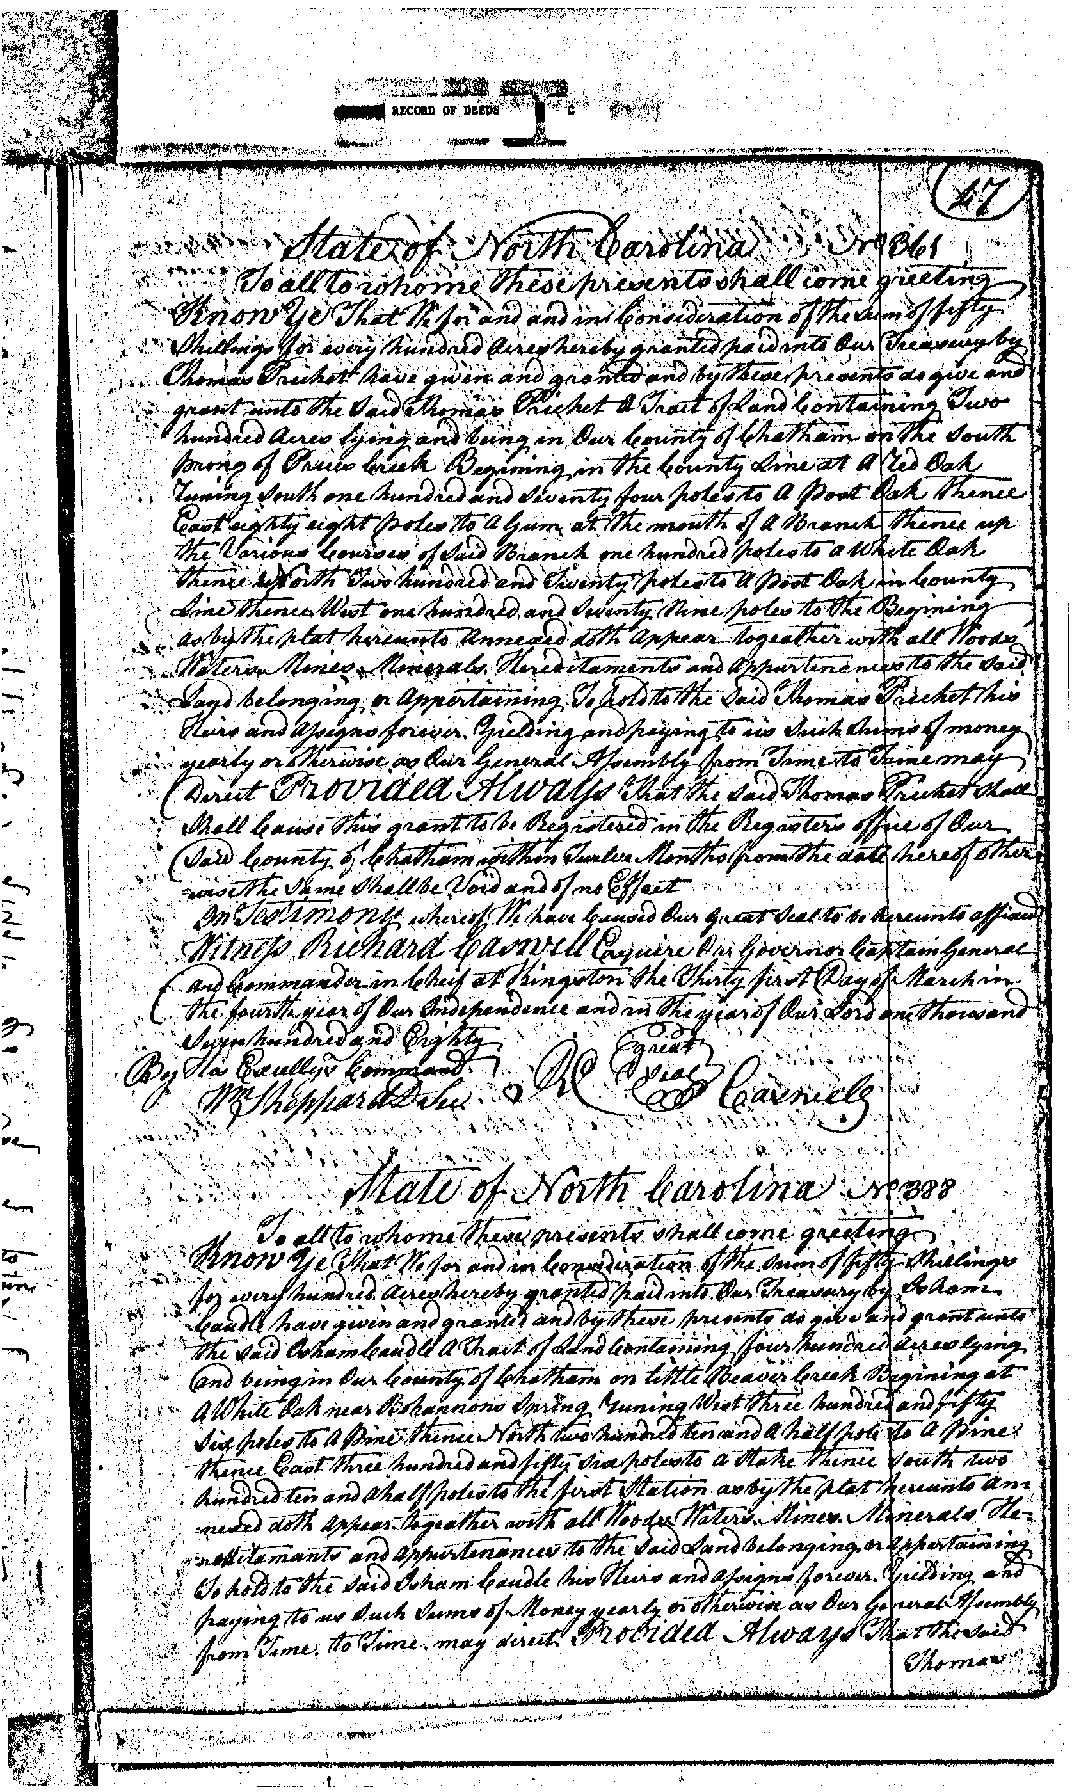 RECORD OF DEEDS C
47
State of North Carolina No 361
To all to whome these presents shall come greeting
Know Ye That We for and and in Consideration of the Sum of fifty
Shillings for every hundred Acres hereby granted paid into Our Treasury by
Thomas Pricket have given and granted and by these presents do give and
grant unto the Said Thomas Pricket A Tract of Land Containing Two
hundred Acres lying and being in Our County of Chatham on the South
prong of Prices Creek Begining in the County Line at A Red Oak
Runing South one hundred and Seventy four poles to A Post Oak thence
East eighty eight poles to A Gum at the mouth of A Branch thence up
the Various Courses of Said Branch one hundred poles to a White Oak
thence North Two hundred and Twenty poles to A Post Oak in County
Line thence West one hundred and Seventy Nine poles to the Begining
as by the plat hereunto Annexed doth Appear Togeather with all Woods
Waters Mines Minerals Hereditaments and Appurtenences to the Said
Land belonging or Appertaining To hold to the Said Thomas Pricket his
Heirs and Assigns forever. Yielding and paying to us Such Sums of money
yearly or otherwise as Our General Assembly from Time to Time may
Direct Provided Always That the Said Thomas Pricket Shall
Shall Cause this grant to be Registered in the Registers office of Our
Said County of Chatham within Twelve Months from the date hereof other
wise the Same Shall be Void and of no Effect
In Testimony whereof We have Caused Our great Seal to be hereunto affixed
Witness Richard Caswell Esquire Our Governor Captain General
and Commander in Cheif at Kingston the Thirty first Day of March in
the fourth year of Our Independence and in the year of Our Lord one thousand
Seven hundred and Eighty
By His Excellys Command
Wm Sheppard D Sec
great
Seal
State of North Carolina No 388
To all to whome these presents shall come greeting
Know Ye That We for and in Consideration of the Sum of fifty Shillings
for every hundred Acres hereby granted paid into Our Treasury by Isham
Caudle have given and granted and by these presents do give and grant unto
the Said Isham Caudle A Tract of Land Containing four hundred Acres lying
and being in Our County of Chatham on little Beaver Creek Begining at
A White Oak near Bohannons Spring Runing West three hundred and fifty
Six poles to A Pine thence North two hundred ten and A half pole to A Pine
thence East three hundred and fifty Six poles to A Stake thence South two
hundred ten and A half poles to the first Station as by the plat hereunto An=
nexed doth Appear Togeather with all Woods Waters Mines Minerals He=
reditamants and Appurtenances to the Said Land belonging or Appertaining
To hold to the Said Isham Caudle his Heirs and Assigns forever. Yielding and
paying to us Such Sums of Money yearly or otherwise as Our General Assembly
from Time to Time may direct Provided Always That the Said
Thomas